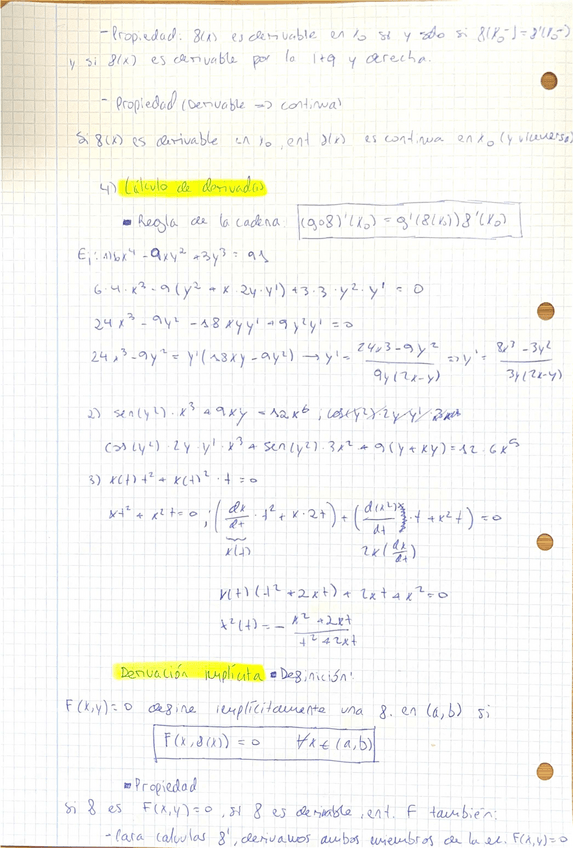 - Propiedad. f(x) es derivable en x₀ si y sólo si f'(x₀⁻) = f'(x₀⁺)
y si f(x) es derivable por la izq y derecha.
- Propiedad (Derivable => continua)
Si f(x) es derivable en x₀, ent f(x) es continua en x₀ (y viceversa)
4) Cálculo de derivadas
▪ Regla de la cadena (g∘f)'(x₀) = g'(f(x₀)) f'(x₀)
Ej: 1) 6x⁴ - 9xy² + 3y³ = 91
6·4·x³ - 9(y² + x·2y·y') + 3·3·y²·y' = 0
24x³ - 9y² - 18xyy' + 9y²y' = 0
24x³ - 9y² = y'(18xy - 9y²) → y' = (24x³ - 9y²)/(9y(2x-y)) => y' = (8x³ - 3y²)/(3y(2x-y))
2) sen(y²)·x³ + 9xy = 12x⁶ ; cos(y²) 2y y'
cos(y²)·2y·y'·x³ + sen(y²)·3x² + 9(y + xy) = 12·6x⁵
3) x(t) t² + x(t)²·t = 0
xt² + x²t = 0 ; (dx/dt · t² + x·2t) + (d(x²)/dt · t + x²t) = 0
x(t) 2x(dx/dt)
x(t)(t² + 2xt) + 2xt + x² = 0
x²(t) = - (x² + 2xt)/(t² + 2xt)
Derivación implícita ▪ Definición:
F(x,y)=0 define implícitamente una f. en (a,b) si
F(x,f(x)) = 0 ∀x ∈ (a,b)
▪ Propiedad
Si f es F(x,y)=0, si f es derivable, ent. F también:
- Para calculas f', derivamos ambos miembros de la ec. F(x,y)=0